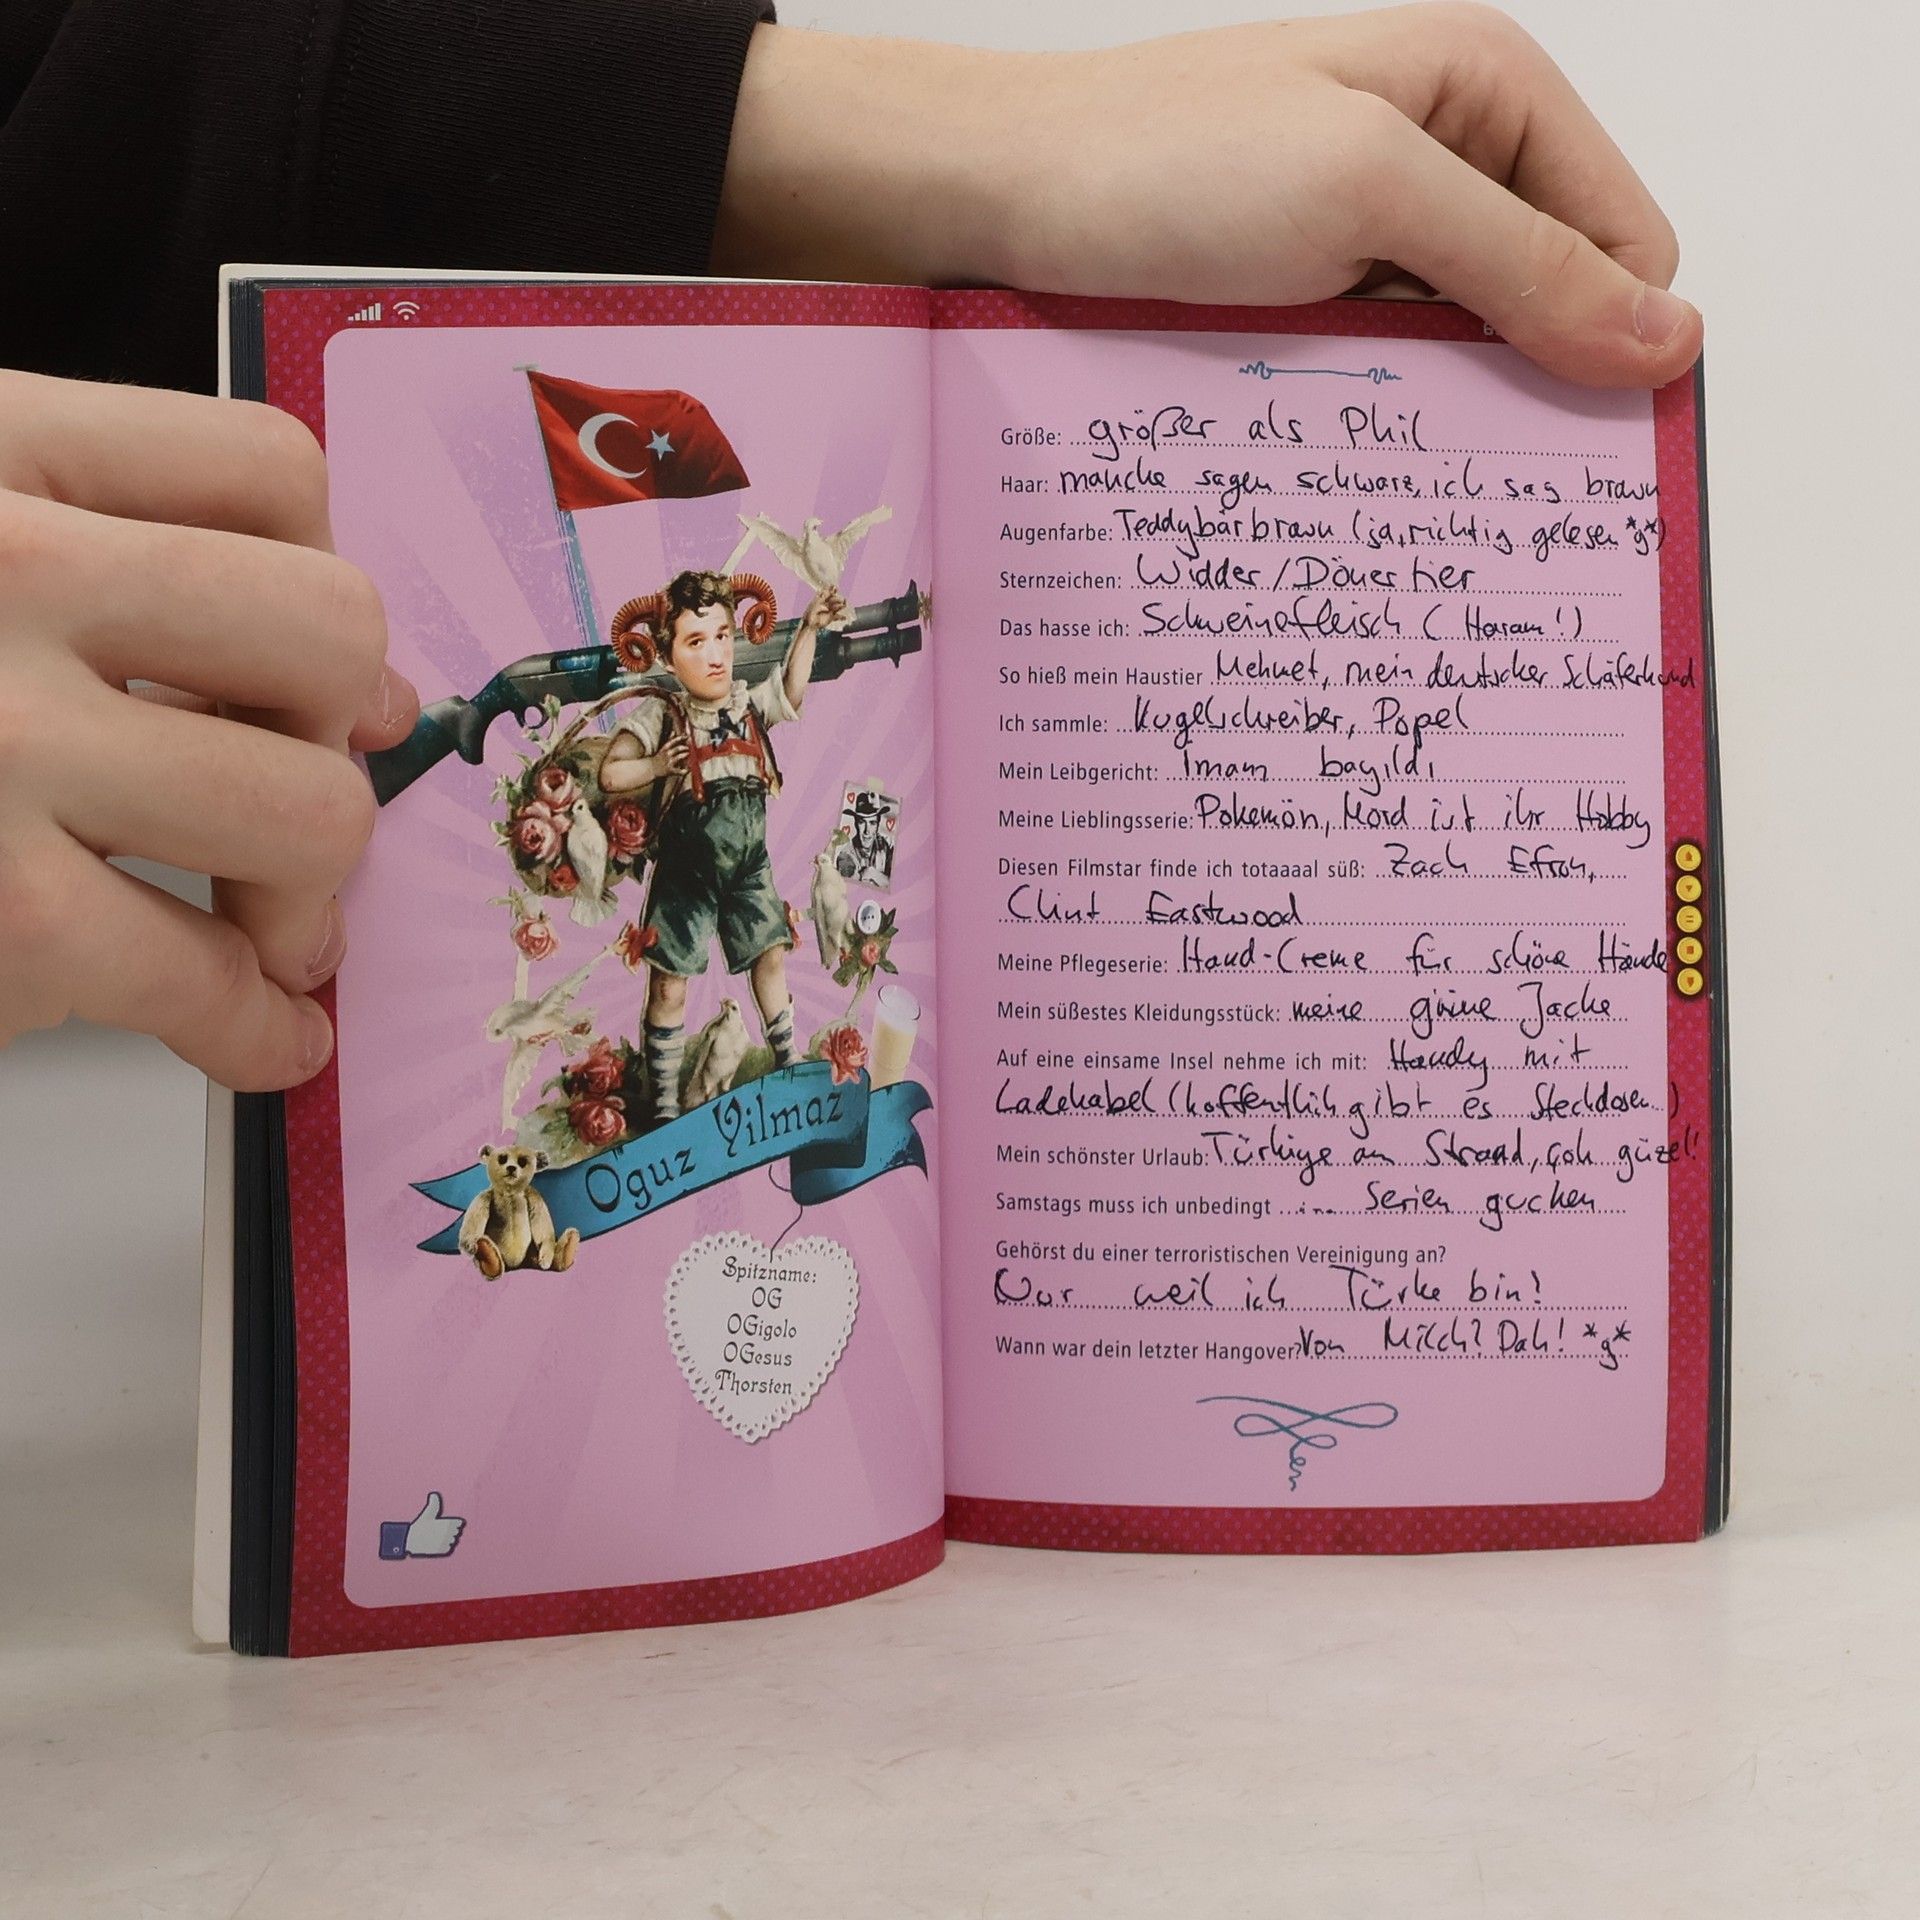 Oguz Yilmaz
Spitzname:
OG
OGigolo
OGesus
Thorsten
Größe: größer als Phil
Haar: manche sagen schwarz, ich sag braun
Augenfarbe: Teddybärbraun (ja, richtig gelesen *g*)
Sternzeichen: Widder / Dönertier
Das hasse ich: Schweinefleisch (Haram!)
So hieß mein Haustier Mehmet, mein deutscher Schäferhund
Ich sammle: Kugelschreiber, Popel
Mein Leibgericht: Imam bayıldı
Meine Lieblingsserie: Pokemön, Mord ist ihr Hobby
Diesen Filmstar finde ich totaaaal süß: Zach Efron,
Clint Eastwood
Meine Pflegeserie: Hand-Creme für schöne Hände
Mein süßestes Kleidungsstück: meine grüne Jacke
Auf eine einsame Insel nehme ich mit: Handy mit
Ladekabel (hoffentlich gibt es Steckdosen..)
Mein schönster Urlaub: Türkiye am Strand, çok güzel!
Samstags muss ich unbedingt ... Serien gucken
Gehörst du einer terroristischen Vereinigung an?
Nur weil ich Türke bin?
Wann war dein letzter Hangover? Von Milch? Dah! *g*